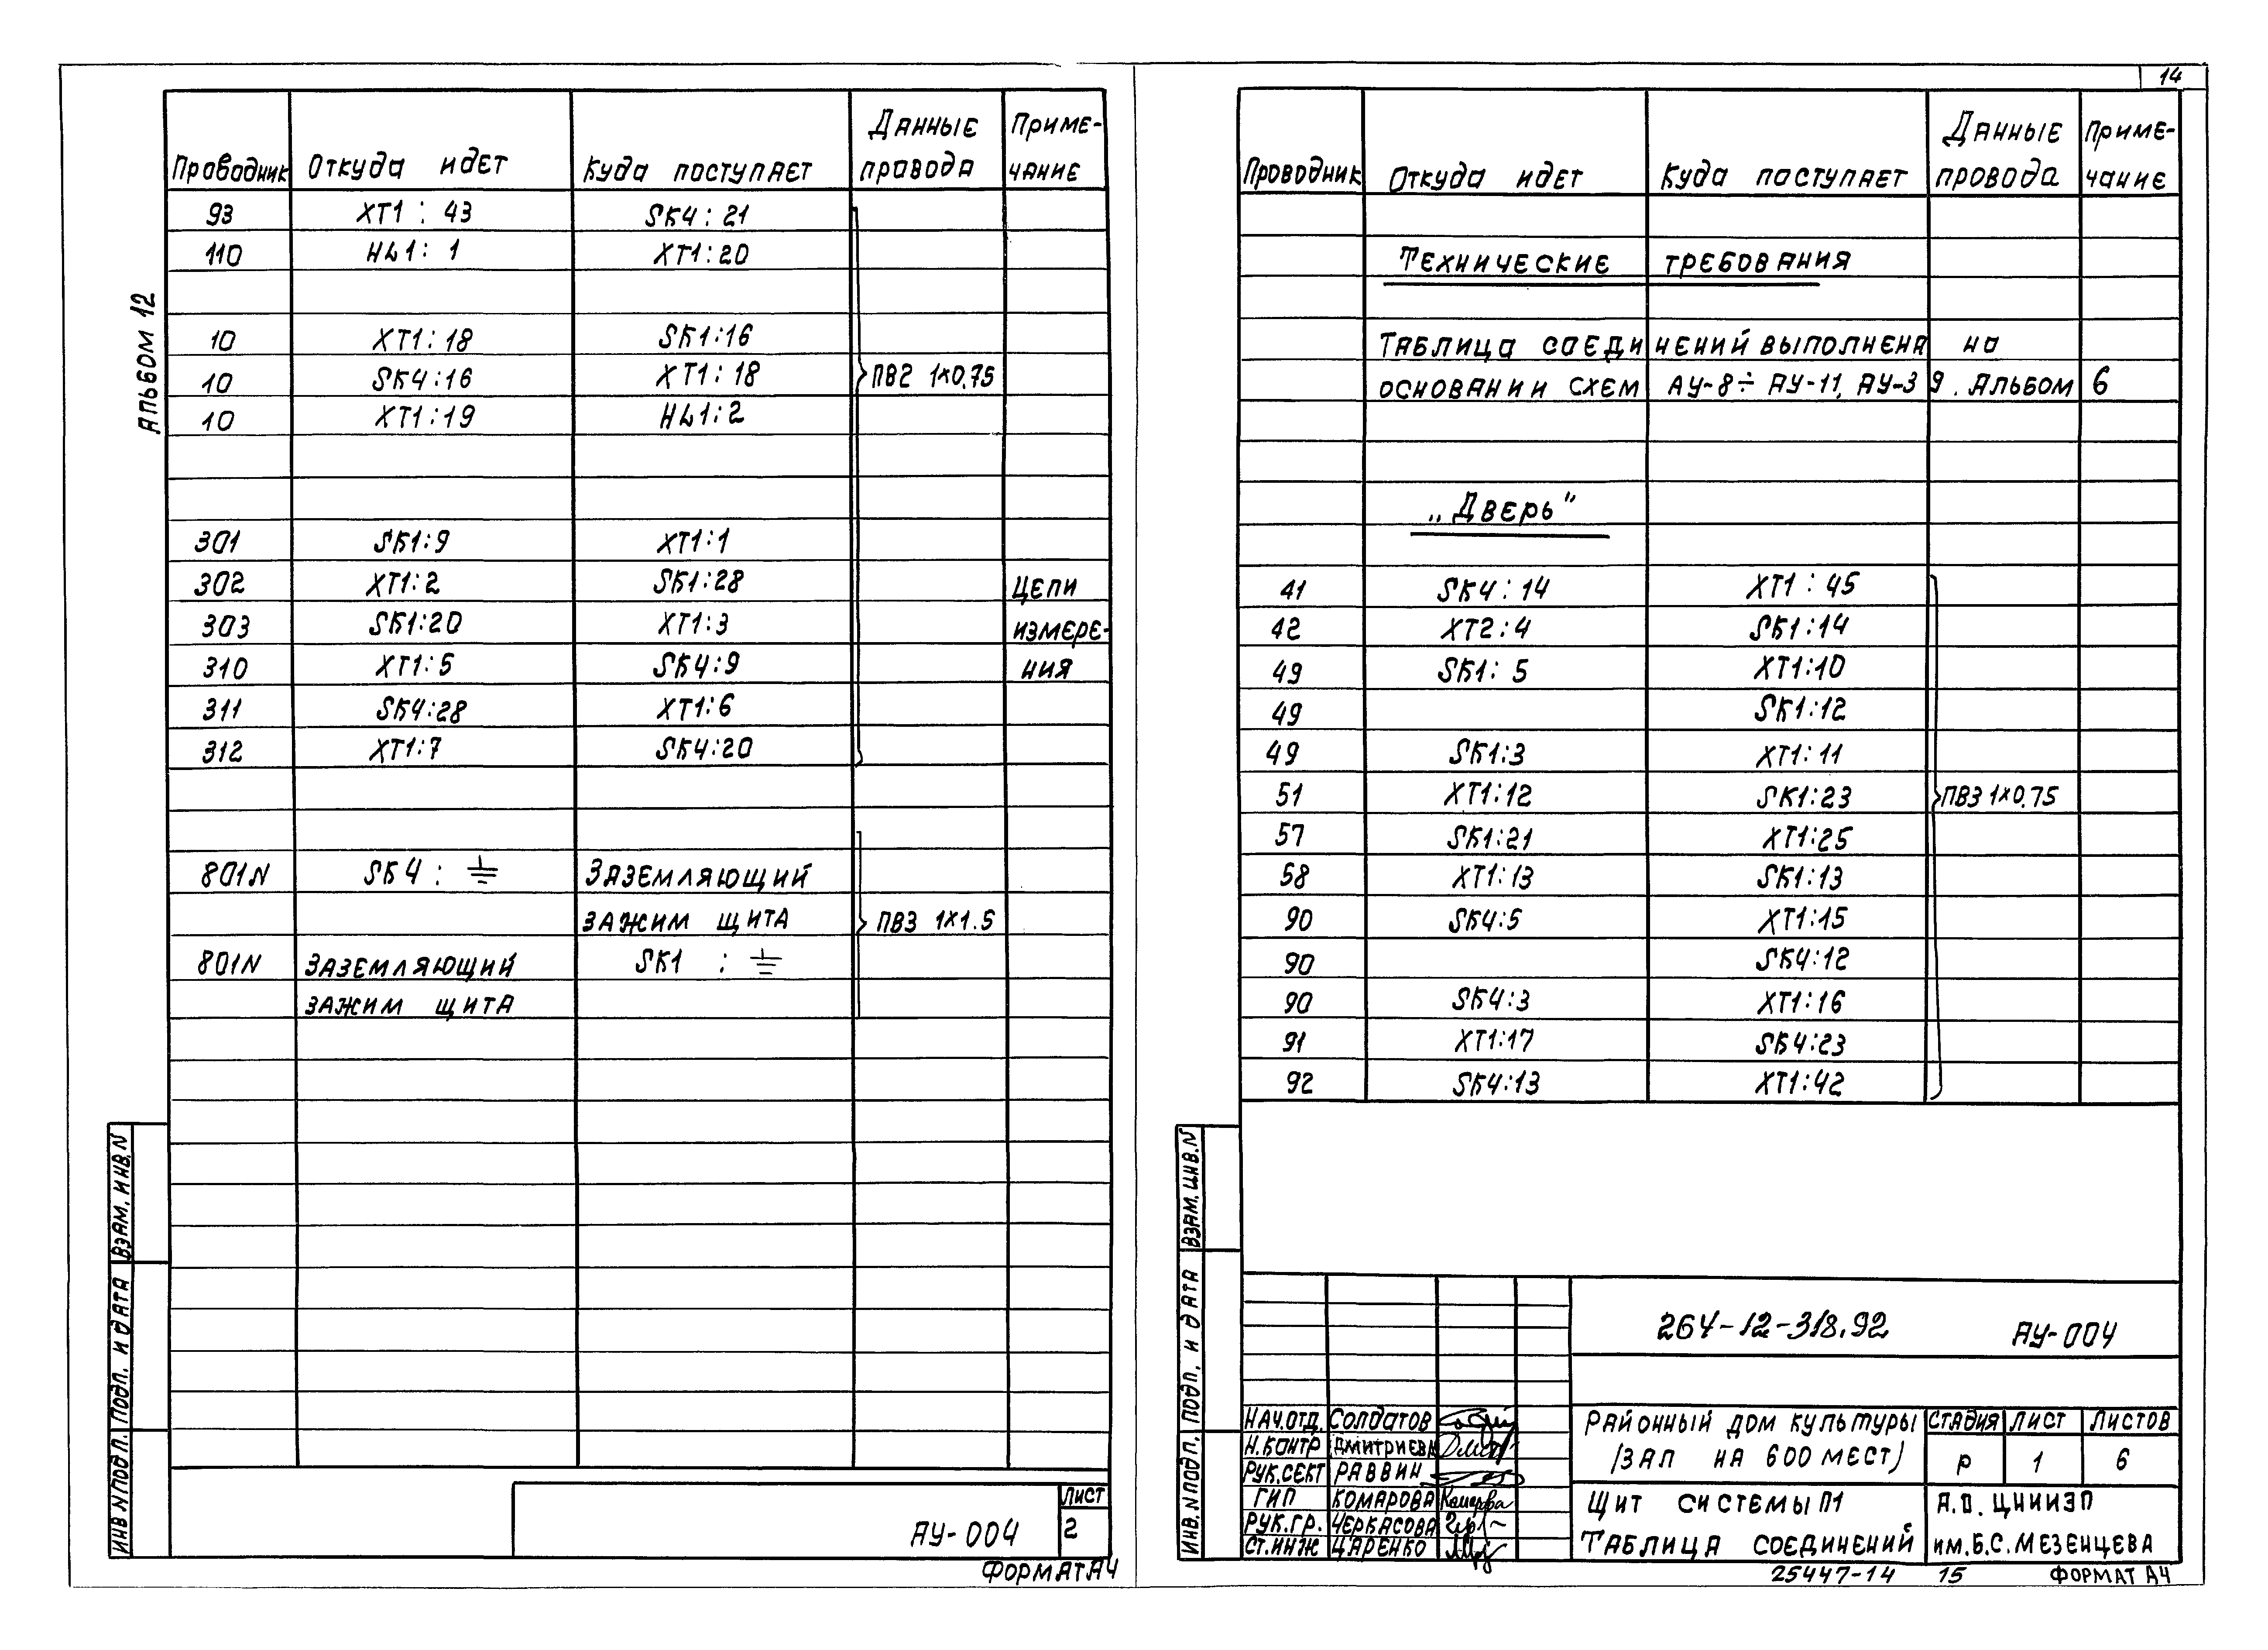 14
Альбом 12
Проводник Откуда идет Куда поступает Данные провода Примечание
93 XT1:43 SK4:21
110 HL1:1 XT1:20
10 XT1:18 SK1:16
10 SK4:16 XT1:18 ПВ2 1×0.75
10 XT1:19 HL1:2
301 SK1:9 XT1:1
302 XT1:2 SK1:28 Цепи
303 SK1:20 XT1:3 измере-
310 XT1:5 SK4:9 ния
311 SK4:28 XT1:6
312 XT1:7 SK4:20
801N SK4: ⏚ Заземляющий
зажим щита ПВ3 1×1.5
801N Заземляющий SK1 : ⏚
зажим щита
Взам. инв. N
Подп. и дата
Инв. N подл.
АУ-004
Лист
2
Формат А4
Проводник Откуда идет Куда поступает Данные провода Приме-чание
Технические требования
Таблица соединений выполнена на
основании схем АУ-8÷АУ-11, АУ-39. Альбом 6
„Дверь"
41 SK4:14 XT1:45
42 XT2:4 SK1:14
49 SK1:5 XT1:10
49 SK1:12
49 SK1:3 XT1:11
51 XT1:12 SK1:23 ПВ3 1×0.75
57 SK1:21 XT1:25
58 XT1:13 SK1:13
90 SK4:5 XT1:15
90 SK4:12
90 SK4:3 XT1:16
91 XT1:17 SK4:23
92 SK4:13 XT1:42
Взам. инв. N
Подп. и дата
Инв. N подл.
264-12-318.92 АУ-004
Нач.отд. Солдатов
Н.контр Дмитриева
Рук.сект Раввин
ГИП Комарова
Рук.гр. Черкасова
Ст.инж Царенко
Районный дом культуры
/зал на 600 мест/
Стадия Лист Листов
Р 1 6
Щит системы П1
Таблица соединений
А.О. ЦНИИЭП
им. Б.С. Мезенцева
25447-14 15 Формат А4